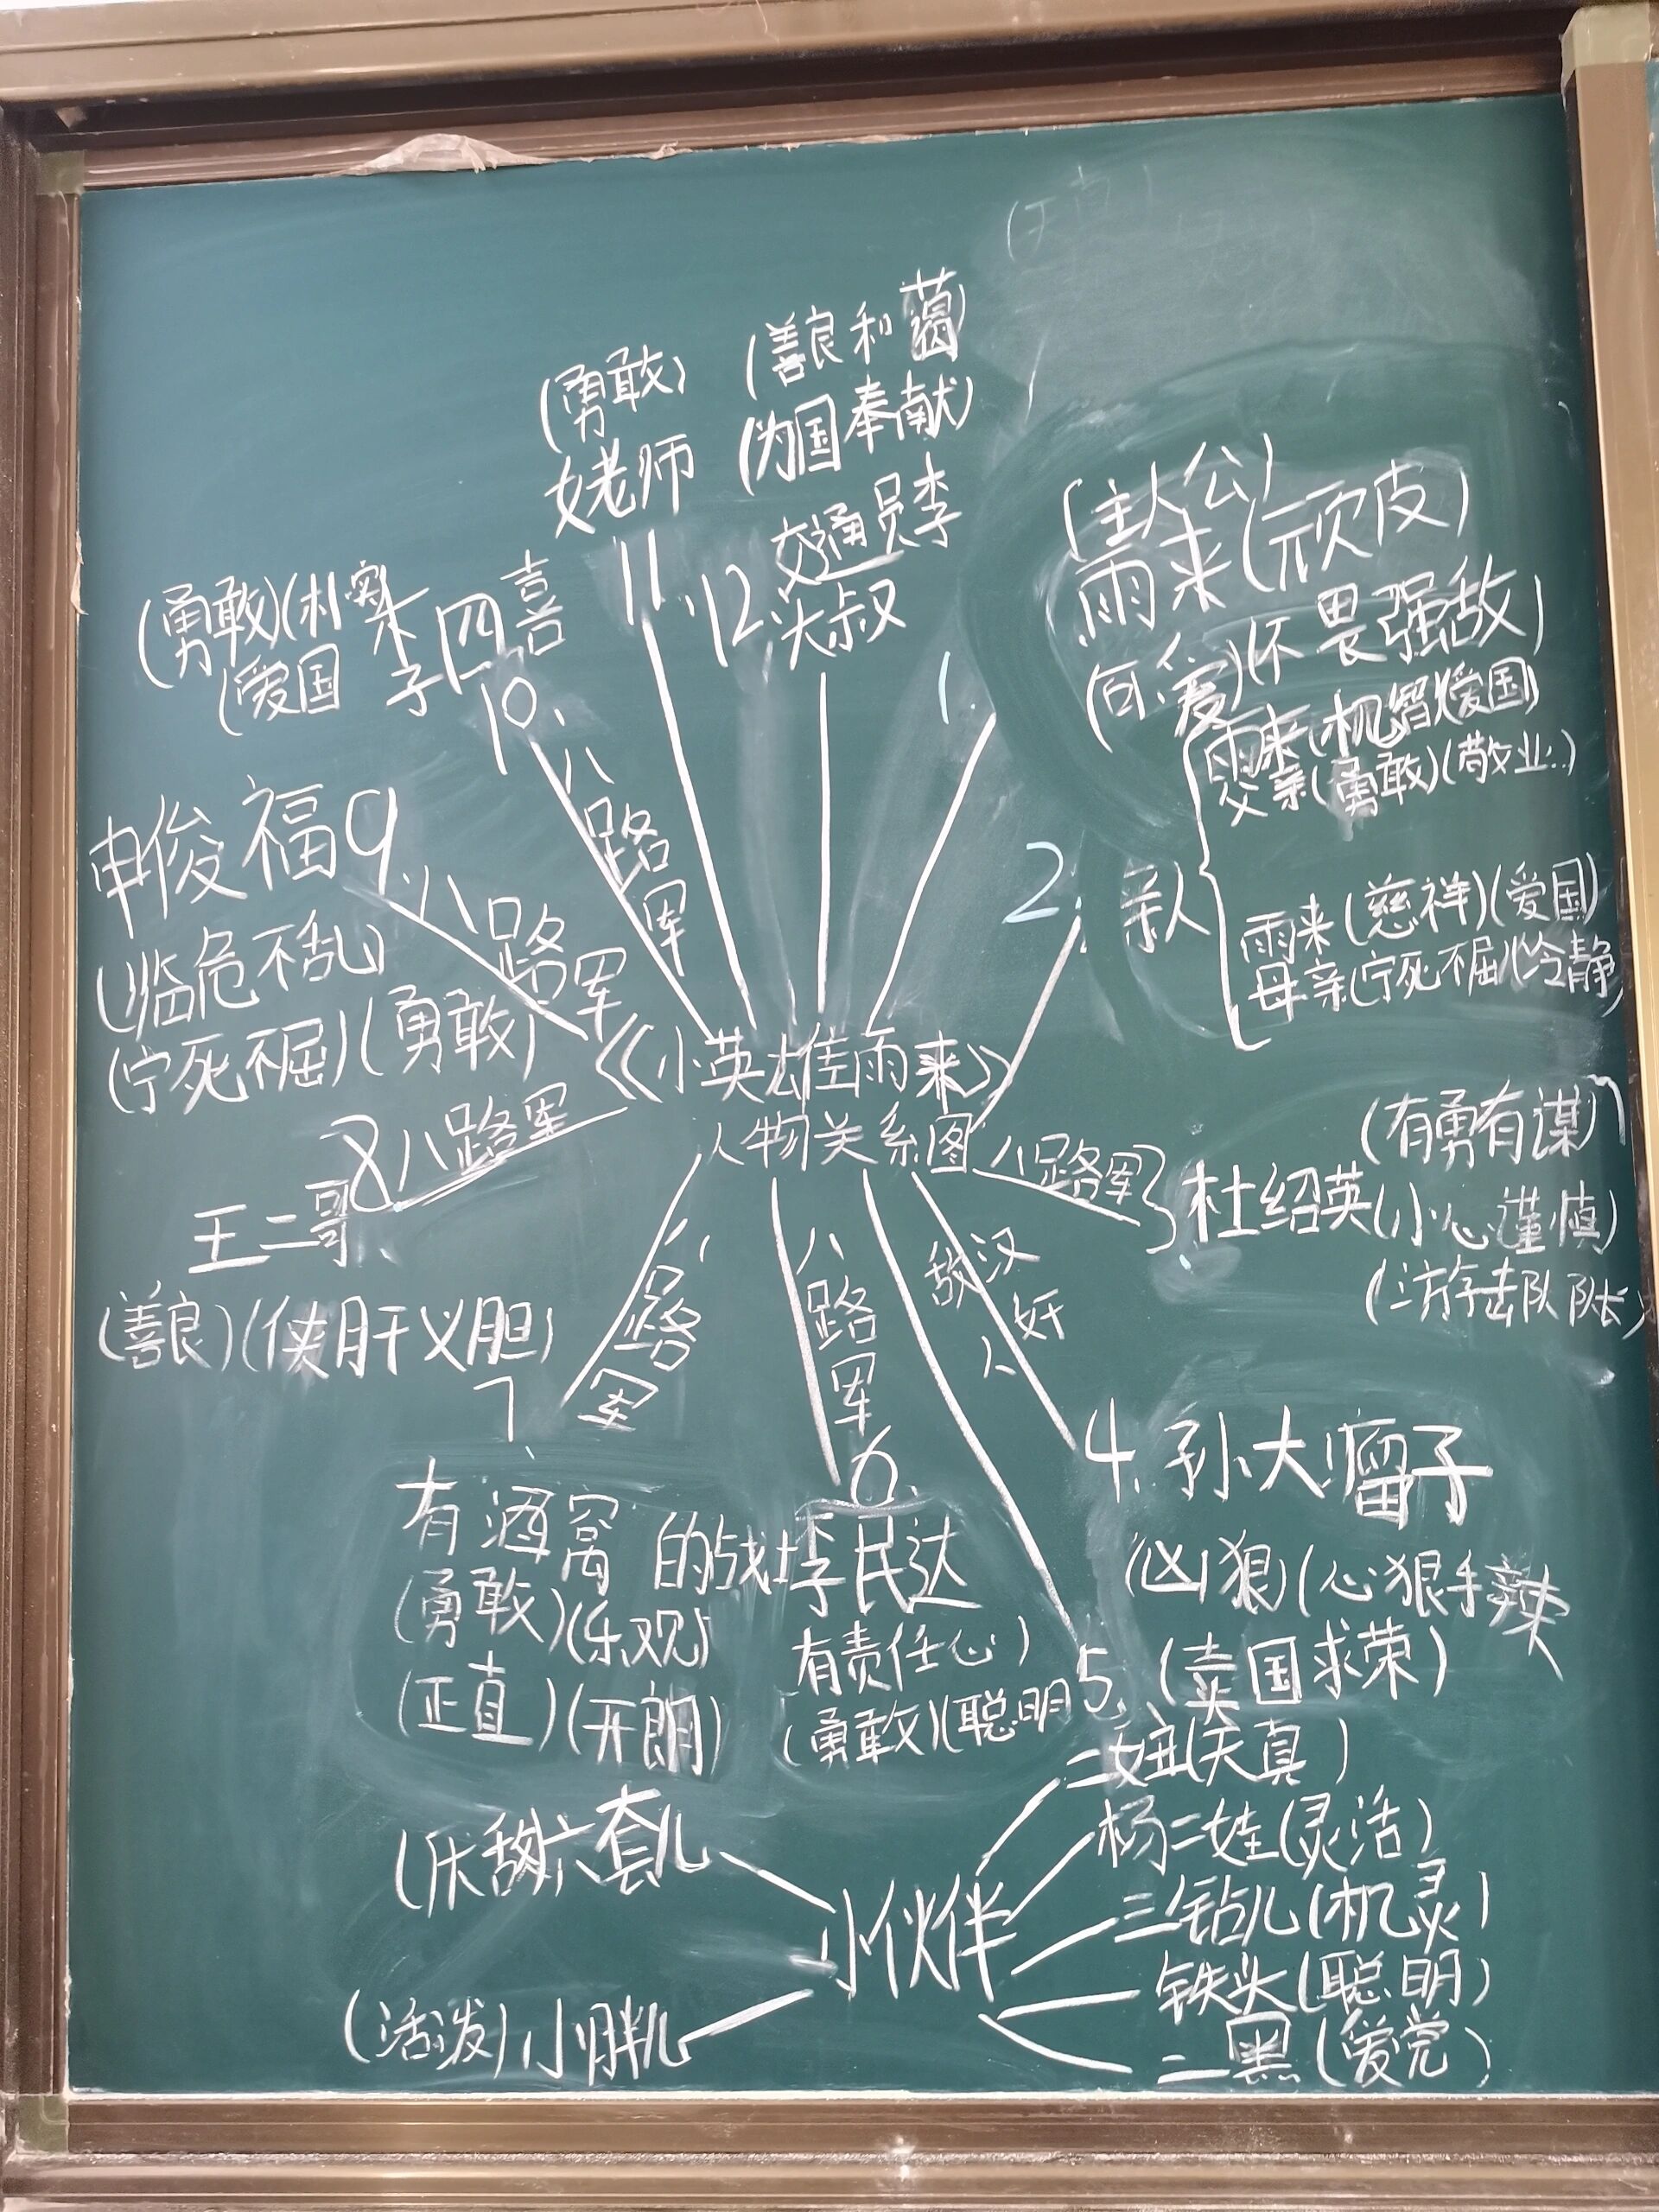 《小英雄雨来》
人物关系图
1
(主人公)
雨来(顽皮)
(可爱)(不畏强敌)
2.
亲人
雨来(机智)(爱国)
父亲(勇敢)(敬业..)
雨来(慈祥)(爱国)
母亲(宁死不屈)(冷静)
八路军
3
杜绍英
(有勇有谋)
(小心谨慎)
(游击队队长)
汉奸
4.孙大瘤子
(凶狠)(心狠手辣
(卖国求荣)
敌人
5.
八路军
6.
李民达
有责任心)
(勇敢)(聪明
八路军
7、
有酒窝的战士
(勇敢)(乐观)
(正直)(开朗)
八路军
8
王二哥、
(善良)(侠肝义胆)
八路军
申俊福9.
(临危不乱)
(宁死不屈)(勇敢)
八路军
10、
(勇敢)(朴实
(爱国
四喜子
11、
(勇敢)
女老师
12、
(善良和蔼)
(为国奉献)
交通员李
大叔
小伙伴
二妞(天真)
杨二娃(灵活)
三钻儿(机灵)
铁头(聪明)
二黑(爱党)
六套儿
(活泼)小胖儿